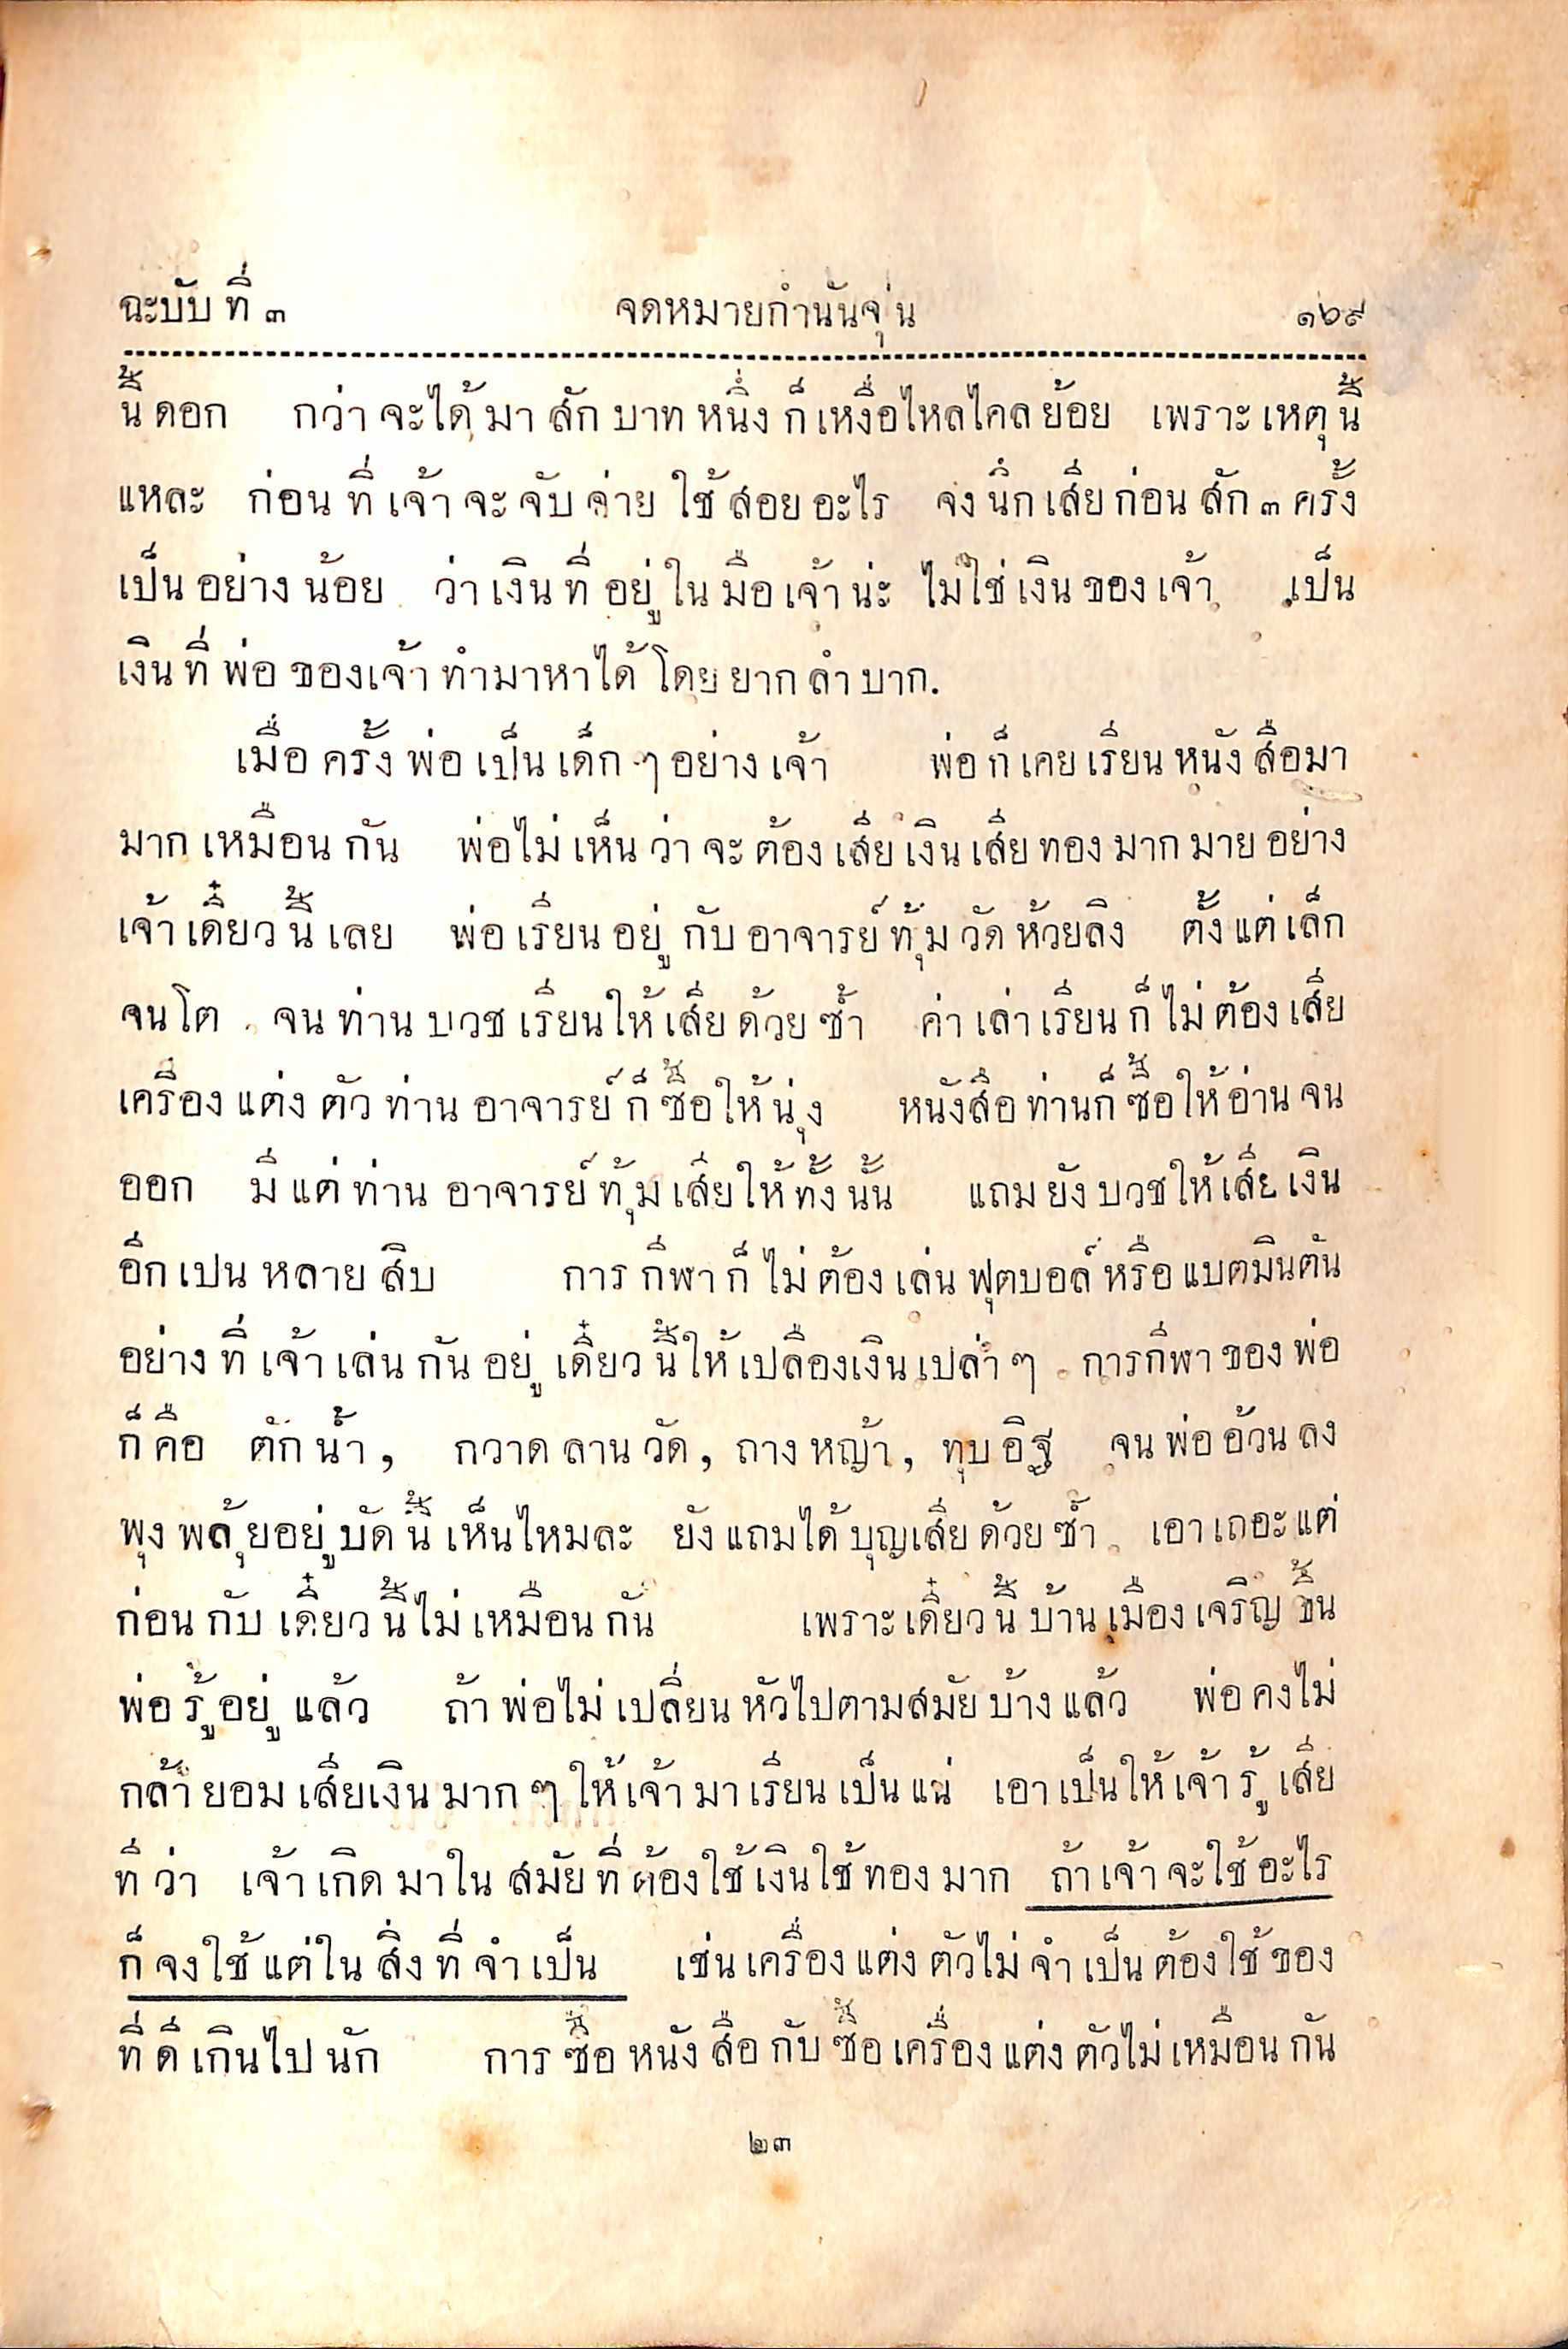 ฉะบับที่ ๓ จดหมายกำนันจุ่น ๑๖๙
นี้ดอก กว่าจะได้มาสักบาทหนึ่งก็เหงื่อไหลไคลย้อย เพราะเหตุนี้
แหละ ก่อนที่เจ้าจะจับจ่ายใช้สอยอะไร จงนึกเสียก่อนสัก ๓ ครั้ง
เป็นอย่างน้อย ว่าเงินที่อยู่ในมือเจ้าน่ะ ไม่ใช่เงินของเจ้า เป็น
เงินที่พ่อของเจ้าทำมาหาได้โดยยากลำบาก.
เมื่อครั้งพ่อเป็นเด็กๆอย่างเจ้า พ่อก็เคยเรียนหนังสือมา
มากเหมือนกัน พ่อไม่เห็นว่าจะต้องเสียเงินเสียทองมากมายอย่าง
เจ้าเดี๋ยวนี้เลย พ่อเรียนอยู่กับอาจารย์ทุ้มวัดห้วยลิง ตั้งแต่เล็ก
จนโต จนท่านบวชเรียนให้เสียด้วยซ้ำ ค่าเล่าเรียนก็ไม่ต้องเสีย
เครื่องแต่งตัวท่านอาจารย์ก็ซื้อให้นุ่ง หนังสือท่านก็ซื้อให้อ่านจน
ออก มีแต่ท่านอาจารย์ทุ้มเสียให้ทั้งนั้น แถมยังบวชให้เสียเงิน
อีกเปนหลายสิบ การกีฬาก็ไม่ต้องเล่นฟุตบอล์หรือแบตมินตัน
อย่างที่เจ้าเล่นกันอยู่เดี๋ยวนี้ให้เปลืองเงินเปล่าๆ การกีฬาของพ่อ
ก็คือ ตักน้ำ, กวาดลานวัด, ถางหญ้า, ทุบอิฐ จนพ่ออ้วนลง
พุงพลุ้ยอยู่บัดนี้ เห็นไหมละ ยังแถมได้บุญเสียด้วยซ้ำ เอาเถอะแต่
ก่อนกับเดี๋ยวนี้ไม่เหมือนกัน เพราะเดี๋ยวนี้บ้านเมืองเจริญขึ้น
พ่อรู้อยู่แล้ว ถ้าพ่อไม่เปลี่ยนหัวไปตามสมัยบ้างแล้ว พ่อคงไม่
กล้ายอมเสียเงินมากๆให้เจ้ามาเรียนเป็นแน่ เอาเป็นให้เจ้ารู้เสีย
ทีว่า เจ้าเกิดมาในสมัยที่ต้องใช้เงินใช้ทองมาก ถ้าเจ้าจะใช้อะไร
ก็จงใช้แต่ในสิ่งที่จำเป็น เช่นเครื่องแต่งตัวไม่จำเป็นต้องใช้ของ
ที่ดีเกินไปนัก การซื้อหนังสือกับซื้อเครื่องแต่งตัวไม่เหมือนกัน
๒๓